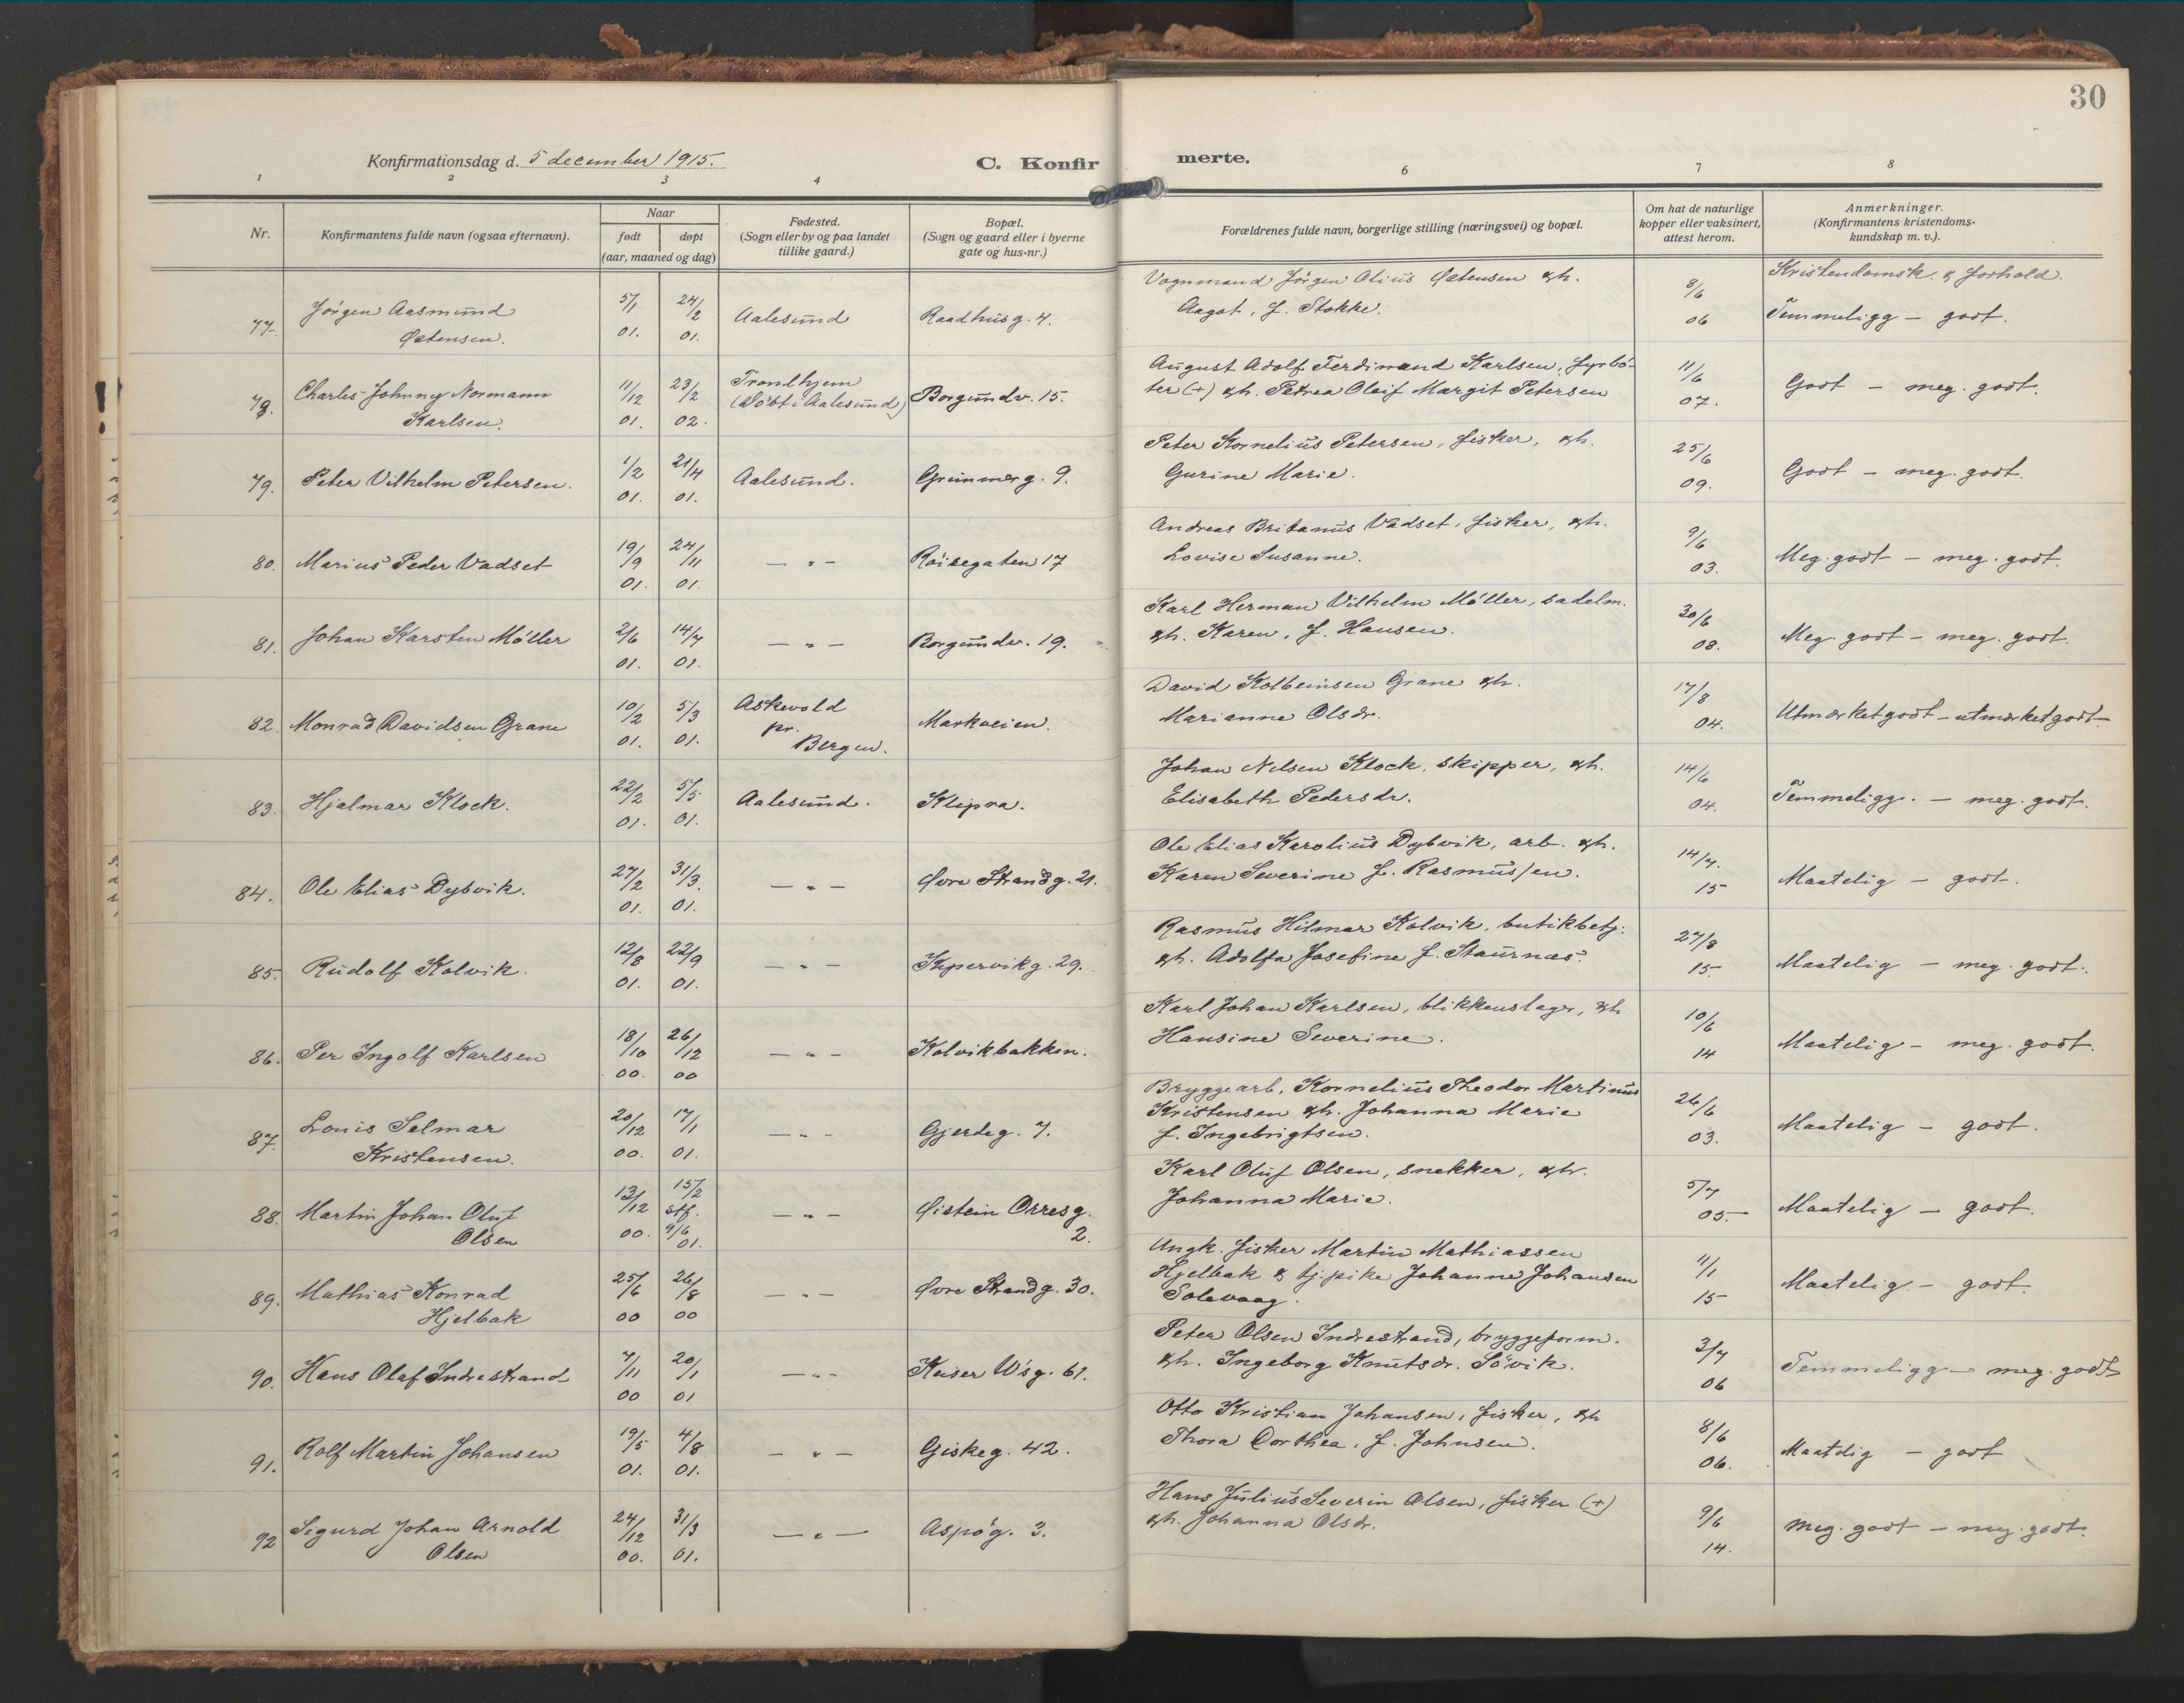 30
Konfirmationsdag d. 5 december 1915.
C. Konfirmerte.
1 2 3 4 6 7 8
Nr. | Konfirmantens fulde navn (ogsaa efternavn). | Naar født | døpt (aar, maaned og dag) | Fødested. (Sogn eller by og paa landet tillike gaard.) | Bopæl. (Sogn og gaard eller i byerne gate og hus-nr.) | Forældrenes fulde navn, borgerlige stilling (næringsvei) og bopæl. | Om hat de naturlige kopper eller vaksinert, attest herom. | Anmerkninger. (Konfirmantens kristendomskundskap m. v.).
Kristendomsk. & forhold.
77. | Jörgen Aasmund Østensen. | 5/1 01. | 24/2 01. | Aalesund | Raadhusg. 4. | Vognmand Jörgen Olius Østensen &h. Aagot, f. Stokke. | 8/6 06 | Temmeligg – godt.
78. | Charles Johnny Normann Karlsen. | 11/12 01. | 23/2 02. | Trondhjem (Döbt i Aalesund) | Borgundv. 15. | August Adolf Ferdinand Karlsen, fyrböter (+) &h. Petrea Oleif Margit Petersen | 11/6 07. | Godt – meg. godt.
79. | Peter Vilhelm Petersen. | 1/2 01. | 21/4 01. | Aalesund. | Grimmerg. 9. | Peter Kornelius Petersen, fisker, &h. Gurine Marie. | 25/6 09. | Godt – meg. godt.
80. | Marius Peder Vadset | 19/9 01. | 24/11 01. | — " — | Röisegaten 17 | Andreas Britanus Vadset, fisker, &h. Lovise Susanne. | 9/6 03. | Meg. godt – meg. godt.
81. | Johan Karsten Möller | 2/6 01. | 14/7 01. | — " — | Borgundv. 19. | Karl Herman Vilhelm Möller, sadelm. &h. Karen, f. Hansen. | 30/6 08. | Meg. godt – meg. godt.
82. | Monrad Davidsen Grane | 10/2 01. | 5/3 01. | Askevold pr. Bergen. | Markveien. | David Kolbeinsen Grane &h. Marianne Olsdr. | 17/8 04. | Utmærket godt – utmærket godt –
83. | Hjalmar Klock. | 22/2 01. | 5/5 01. | Aalesund. | Klipra. | Johan Nilsen Klock, skipper, &h. Elisabeth Pedersdr. | 14/6 04. | Temmeligg. – meg. godt.
84. | Ole Elias Dybvik. | 27/2 01. | 31/3. 01. | — " — | Øvre Strandg. 21. | Ole Elias Karolius Dybvik, arb. &h. Karen Severine f. Rasmussen. | 14/7. 15 | Maatelig – godt.
85. | Rudolf Kolvik. | 12/8 01. | 22/9 01. | — " — | Kipervikg. 29. | Rasmus Hilmar Kolvik, butikbetj. &h. Adolfa Josefine f. Staurnæs. | 27/8 15. | Maatelig – meg. godt.
86. | Per Ingolf Karlsen | 18/10 00. | 26/12 00 | — " — | Kolvikbakken. | Karl Johan Karlsen, blikkenslager, &h Hansine Severine. | 10/6 14 | Maatelig – meg. godt.
87. | Louis Selmar Kristensen. | 20/12 00. | 17/1 01. | — " — | Gjerdeg. 7. | Bryggearb. Kornelius Theodor Martinus Kristensen &h. Johanna Marie f. Ingebrigtsen. | 26/6 03. | Maatelig – godt.
88. | Martin Johan Oluf Olsen | 13/12 00. | 15/2 stf. 9/6 01. | — " — | Øistein Orresg. 2. | Karl Oluf Olsen, snekker, &h. Johanna Marie. | 5/7 05. | Maatelig – godt.
89. | Mathias Konrad Hjelbak | 25/6 00 | 26/8 00 | — " — | Øvre Strandg. 30. | Ungk. fisker Martin Mathiassen Hjelbak & tj.pike Johanne Johansen Solevaag. | 11/1 15 | Maatelig – godt.
90. | Hans Olaf Indrestrand | 7/11 00 | 20/1 01 | — " — | Keiser W's g. 61. | Peter Olsen Indrestrand, bryggeform. &h. Ingeborg Knutsdr. Sövik. | 3/7 06 | Temmeligg – meg. godt
91. | Rolf Martin Johansen | 19/5 01. | 4/8 01. | — " — | Giskeg. 42. | Otto Kristian Johansen, fisker, &h Thora Dorthea, f. Johnsen. | 8/6 06. | Maatelig – godt
92 | Sigurd Johan Arnold Olsen | 24/12 00. | 31/3 01. | — " — | Aspög. 3. | Hans Julius Severin Olsen, fisker (+) &h. Johanna Olsdr. | 9/6 14. | Meg. godt – meg. godt.